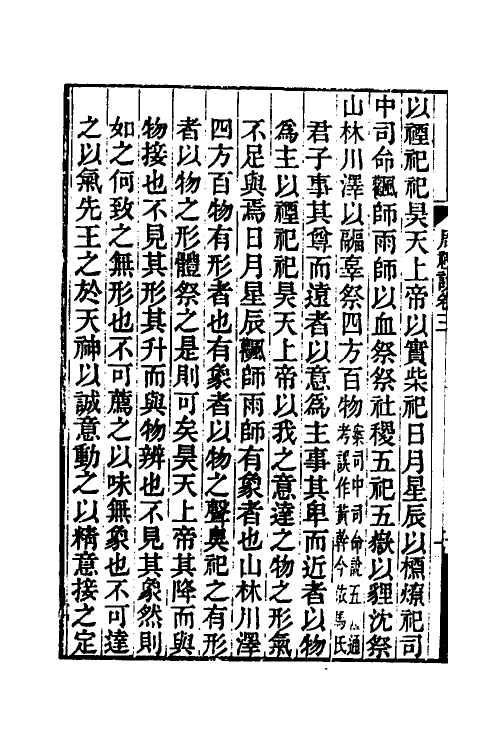 以禋祀祀昊天上帝以實柴祀日月星辰以槱燎祀司
中司命飌師雨師以血祭祭社稷五祀五嶽以貍沈祭
山林川澤以疈辜祭四方百物案司中司命說五通
考誤作黃幹今依馬氏
君子事其尊而遠者以意爲主事其卑而近者以物
爲主以禋祀祀昊天上帝以我之意達之物之形氣
不足與焉日月星辰飌師雨師有象者也山林川澤
四方百物有形者也有象者以物之聲臭祀之有形
者以物之形體祭之是則可矣昊天上帝其降而與
物接也不見其形其升而與物辨也不見其象然則
如之何致之無形也不可薦之以味無象也不可達
之以氣先王之於天神以誠意動之以精意接之定